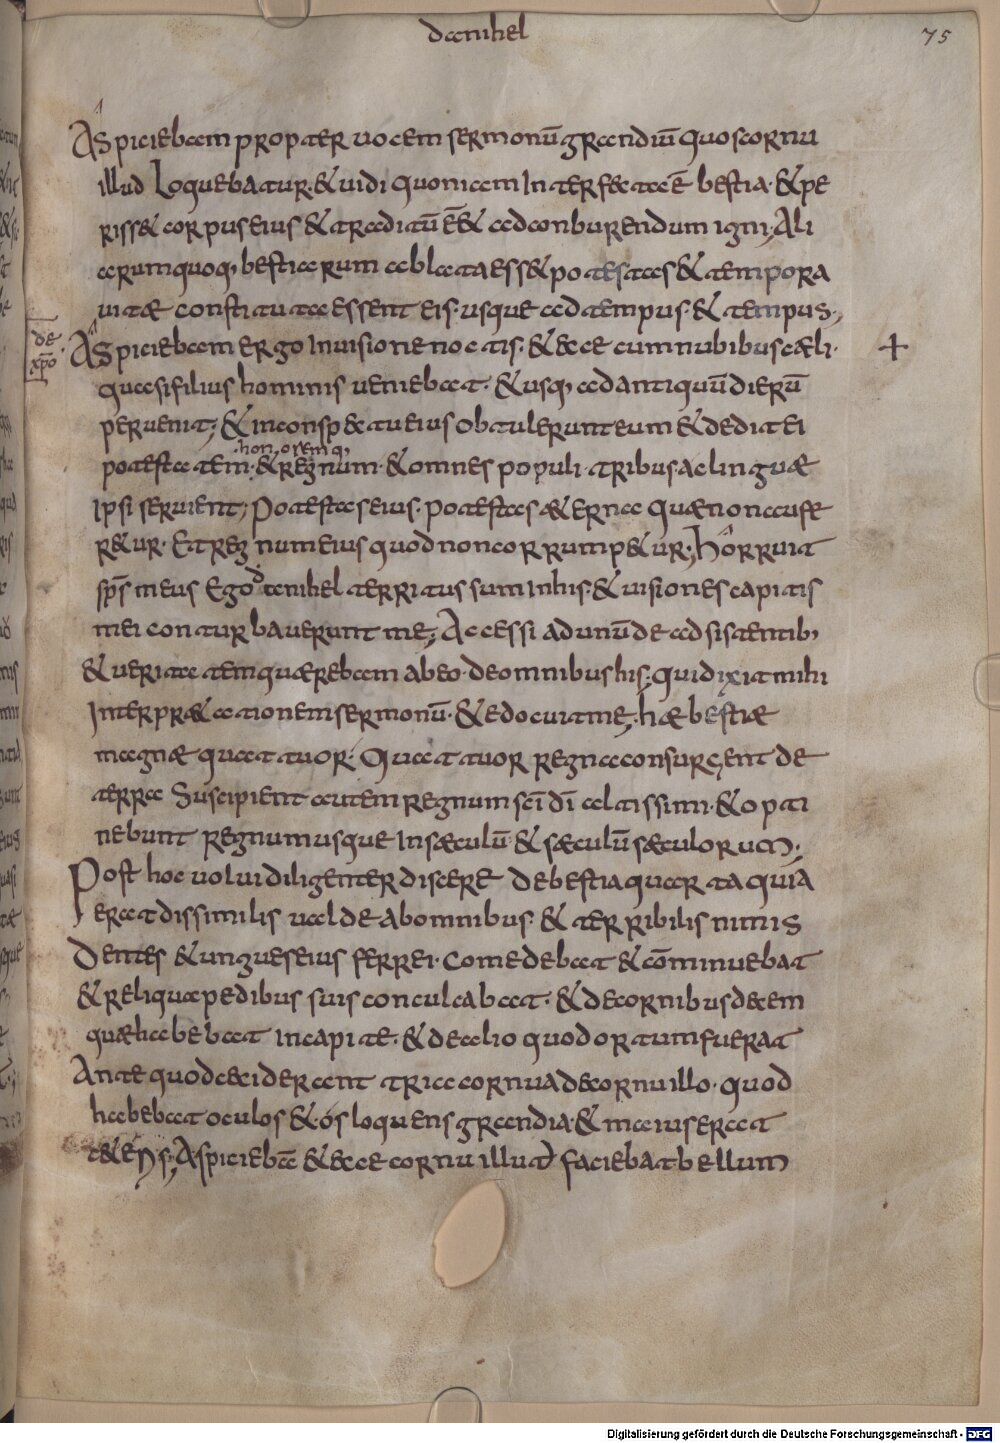 danihel
75
Aspiciebam propter uocem sermonū grandiū quos cornu
illud Loquebatur. & uidi quoniam Interfecta ē bestia. & pe
riss& corpus eius & traditū ē & ad conburendum igni; Ali
arum quoq, bestiarum ablata ess& potestas & tempora
uitae constituta essent eis. usque ad tempus. & tempus.,
de xpo
Aspiciebam ergo In uisione noctis. & ecce cum nubibus caeli.
+
quasi filius hominis ueniebat. & usq, ad antiquū dierū
peruenit; & in conspectu eius obtulerunt eum & dedit ei
honorem q,
potestatem. & regnum. & omnes populi. tribus. ac linguae
Ipsi seruient; Potestas eius. potestas aeterna quae non aufe
r&ur. Et regnum eius quod non corrump&ur; Horruit
sp̄s meus Ego danihel territus sum In his. & uisiones capitis
mei conturbauerunt me; Accessi ad unū de adsistentib,
& ueritatem quaerebam ab eo. de omnibus his. qui dixit mihi
Interpr&ationem sermonū. & edocuit me; hae bestiae
magnae quattuor. Quattuor regna consurgent de
terra Suscipient autem regnum sc̄i dī altissimi. & opti
nebunt regnum usque In saeculū. & saeculū saeculorum;
Post hoc uolui diligenter discere de bestia quarta quia
erat dissimilis ualde ab omnibus. & terribilis nimis
Dentes & ungues eius ferrei. comedebat & cōminuebat
& reliqua pedibus suis conculcabat. & de cornibus decem
quae habebat in capite. & de alio quod ortum fuerat
Ante quod ceciderant tria cornua de cornu illo. quod
habebat oculos & ós loquens grandia. & maius erat
c&eris; Aspiciebā & ecce cornu illud faciebat bellum
Digitalisierung gefördert durch die Deutsche Forschungsgemeinschaft - DFG